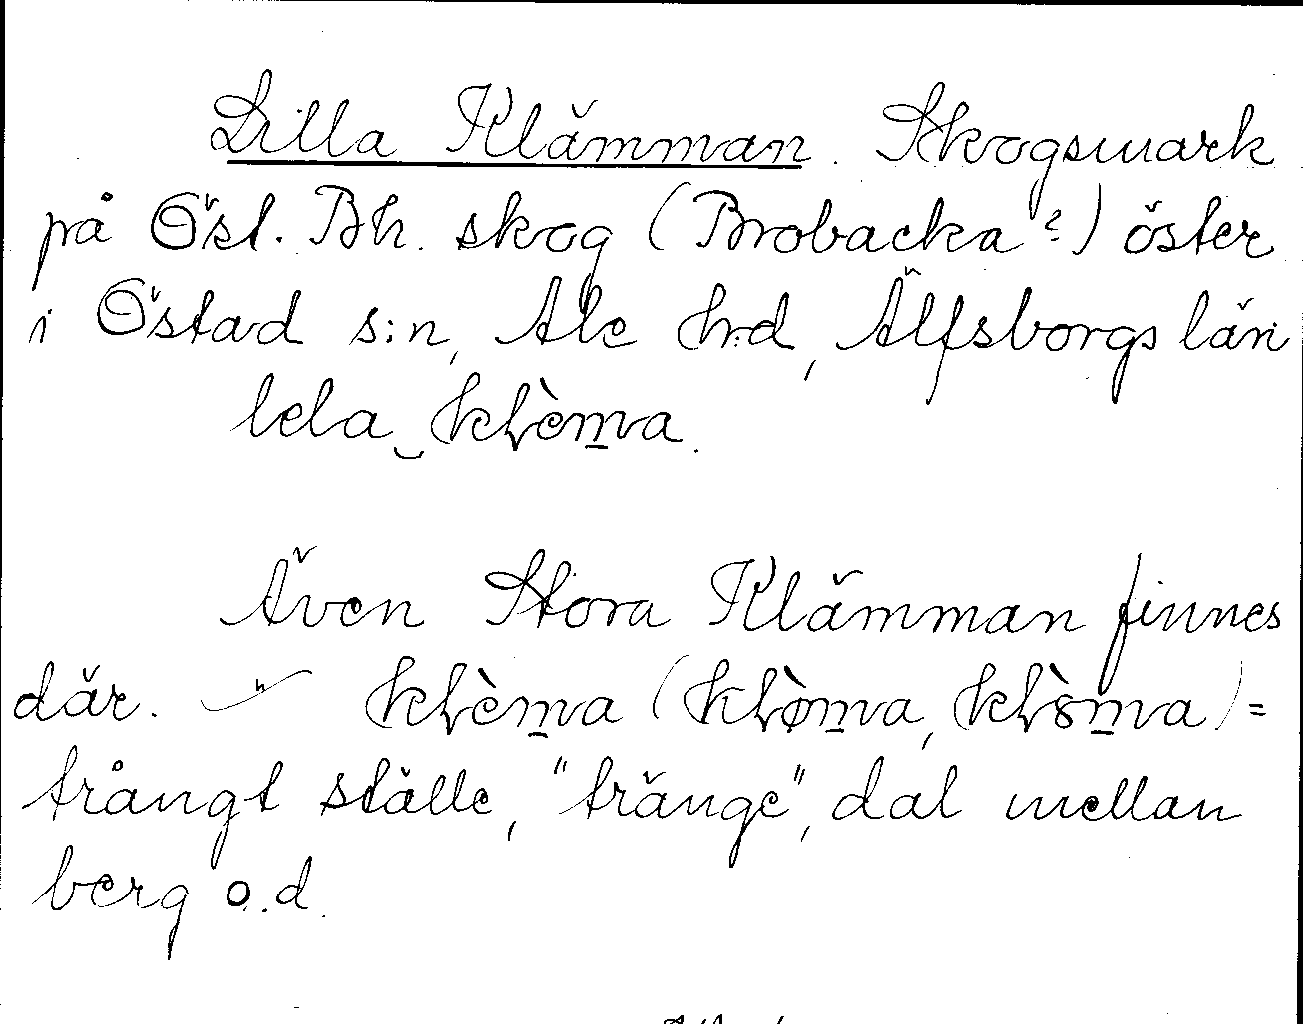 Lilla Klämman. Skogsmark
på Östl. Bh. skog (Brobacka?) öster
i Östad s:n, Ale hd, Älfsborgs län
lela‿kl̀èm̲a.
Även Stora Klämman finnes
där. klèm̲a (klø̀m̲a, klòm̲a) =
trångt ställe, "tränge", dal mellan
berg o.d.